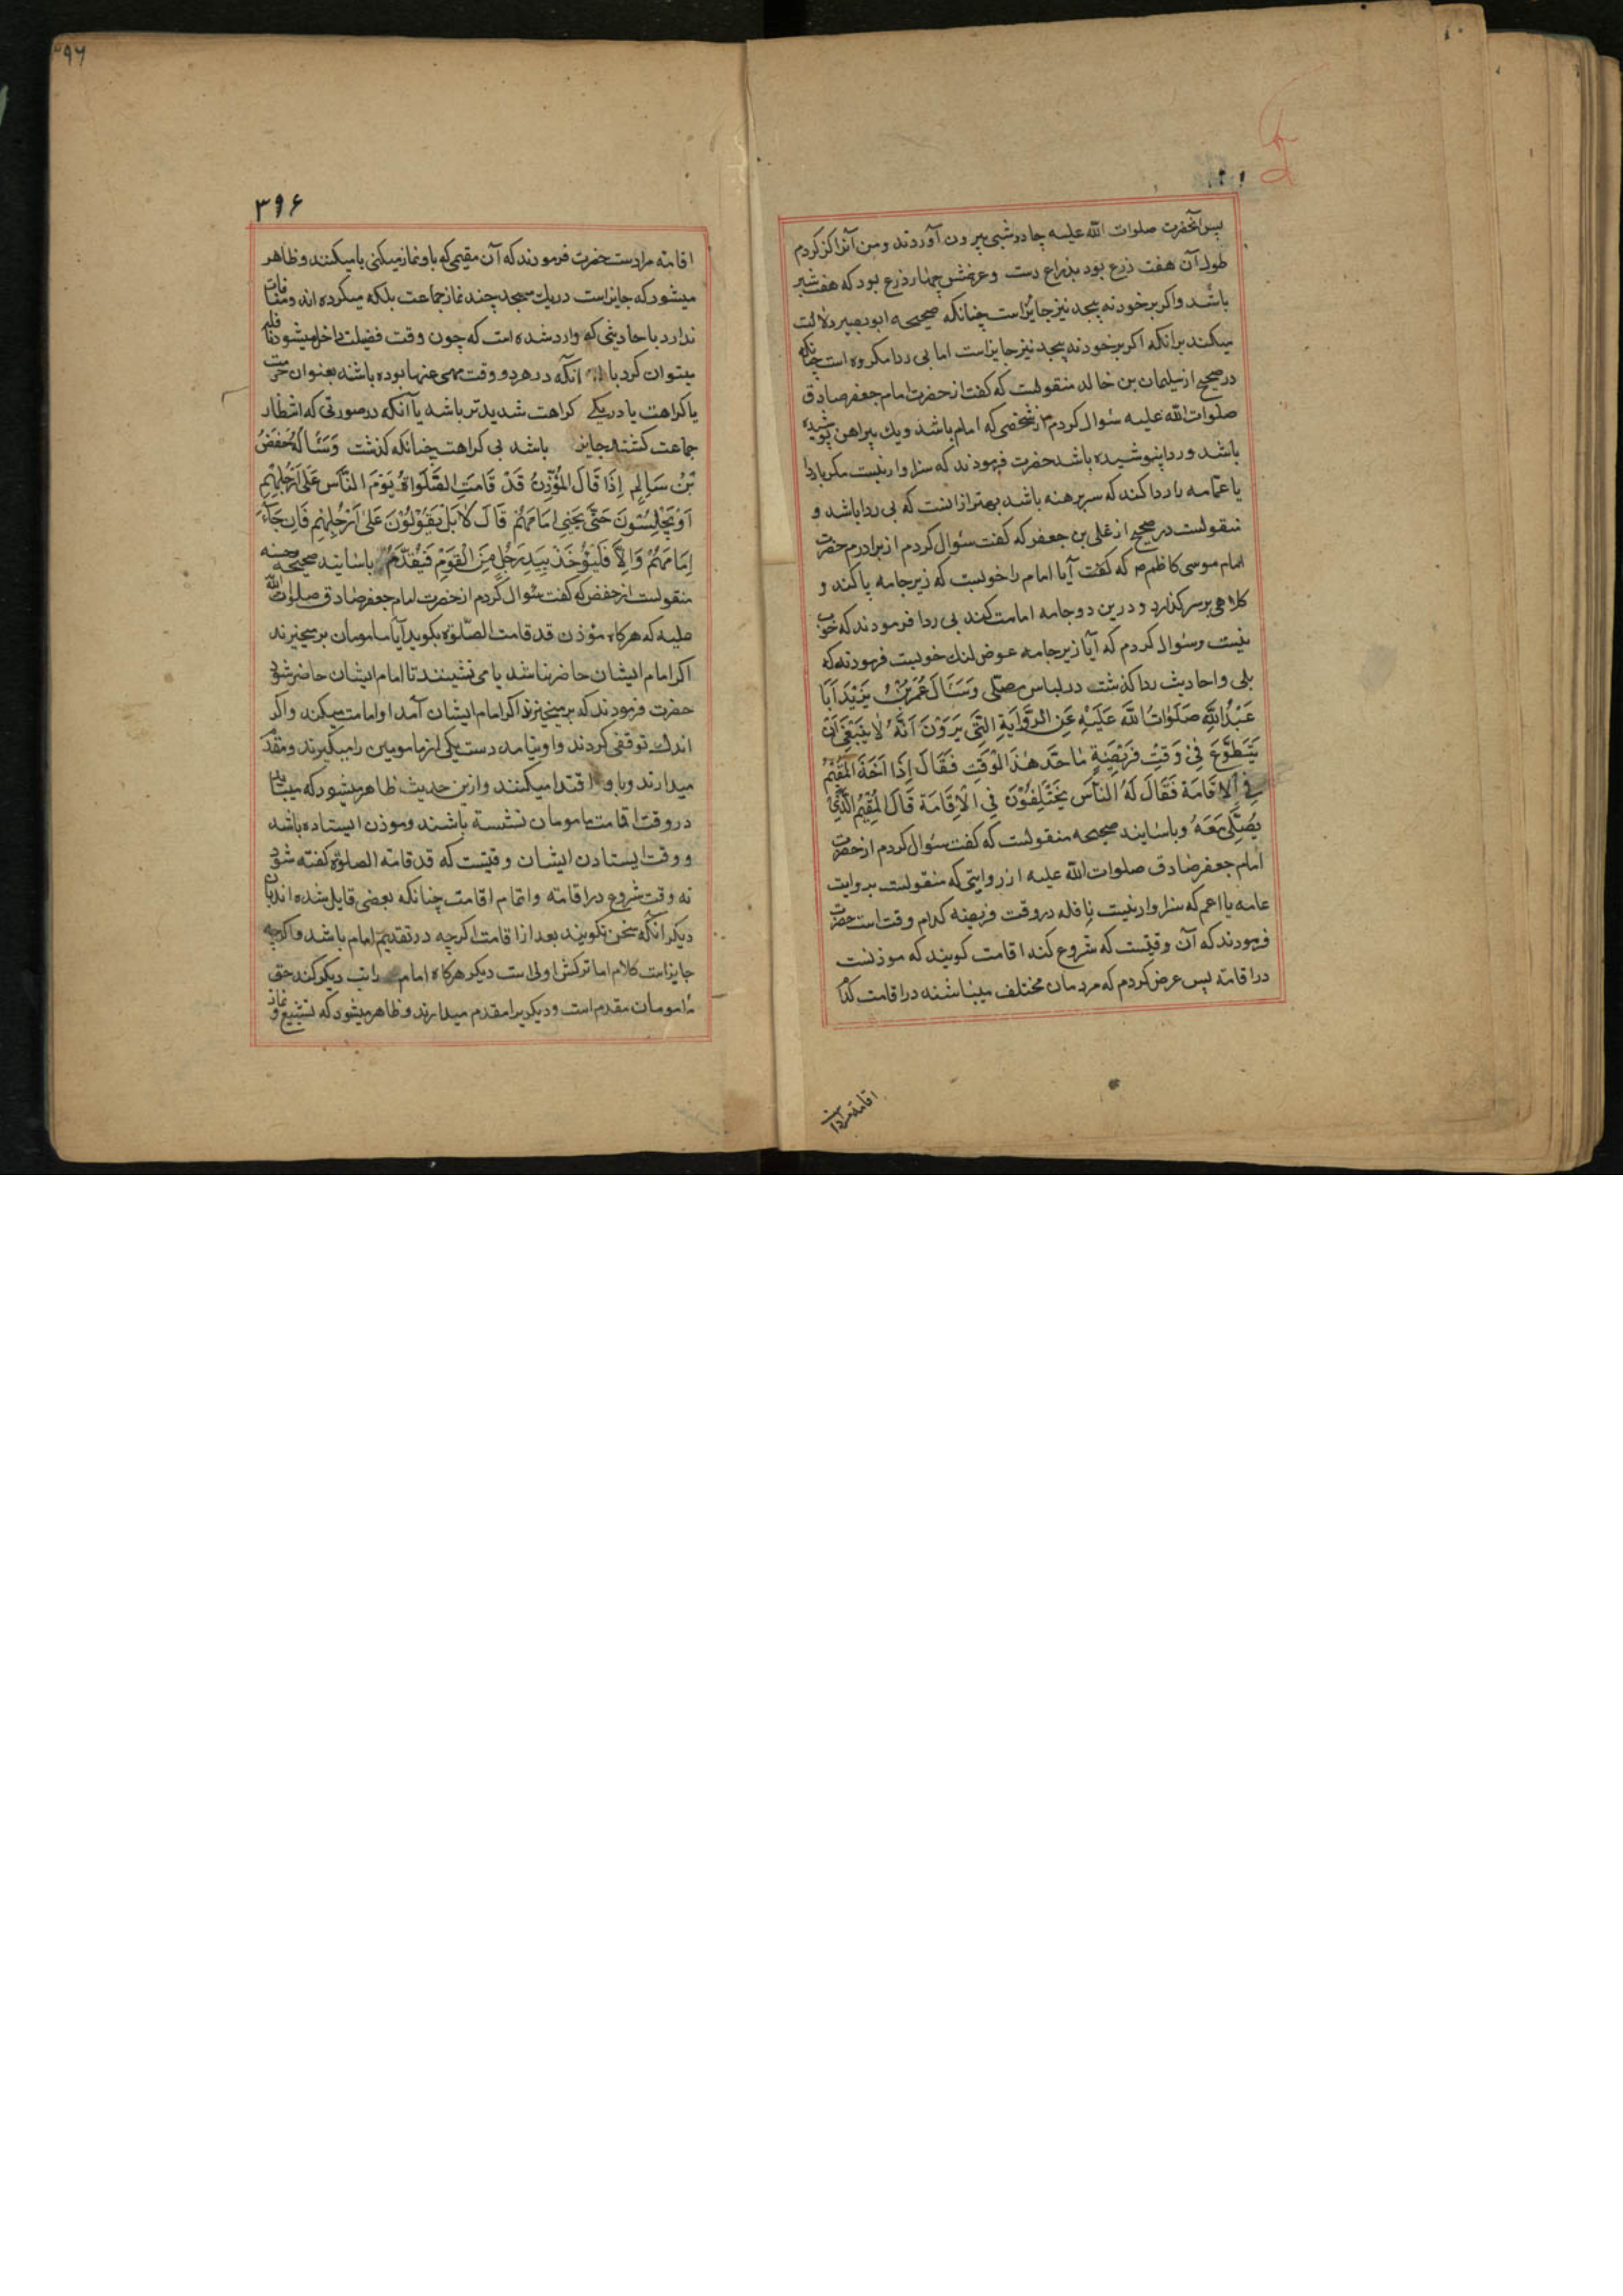 پس آنحضرت صلوات الله علیه چادر شبی بیرون آوردند و من آنرا کز کردم
طول آن هفت ذرع بود بذراع دست و عرضش چهار ذرع بود که هفت شبر
باشد واکر بر خود نه پیچد نیز جایز است چنانکه صحیحه ابو بصیر دلالت
میکند برانکه اکر بر خود نه پیچد نیز جایز است اما بی ردا مکروه است چنانکه
در صحیح از سلیمان بن خالد منقولست که کفت از حضرت امام جعفر صادق
صلوات الله علیه سئوال کردم از شخصی که امام باشد و یک پیراهن پوشیده
باشد و ردا پنوشیده باشد حضرت فرمودند که سزاوار نیست مکر با ردا
یا عمامه را ردا کند که سر برهنه باشد بهتر از انست که بی ردا باشد و
منقولست در صحیح از علی بن جعفر که کفت سئوال کردم از برادرم حضرت
امام موسی کاظم ص که کفت آیا امام را خوبست که زیر جامه پا کند و
کلاهی بر سر کذارد و درین دو جامه امامت کند بی ردا فرمودند که خوب
نیست و سئوال کردم که آیا زیر جامه عوض لنک خوبست فرمودند که
بلی و احادیث ردا کذشت در لباس مصلی وَسَأَلَ عُمَرُ بْنُ یَزِیدَ اَبَا
عَبْدُاللّهِ صَلَوٰاتُ اللّهِ عَلَیْهِ عَنِ الرِّوَایَةِ الَّتِی یَرَوْنَ اَنَّهُ لٰا یَنْبَغِی اَنْ
یَتَطَوَّعَ فِیْ وَقْتِ فَرِیضَةٍ مٰا حَدُّ هٰذَا الْوَقْتِ فَقَالَ اِذَا اَخَذَ الْمُقِیْمُ
فِی الْاِقَامَةِ فَقَالَ لَهُ النَّاسُ یَخْتَلِفُوْنَ فِی الْاِقَامَةِ قَالَ الْمُقِیْمُ الَّذِیْ
یُصَلِّی مَعَهُ و باسانید صحیحه منقولست که کفت سئوال کردم از حضرت
امام جعفر صادق صلوات الله علیه از روایتی که منقولست بروایت
عامه یا اعم که سزاوار نیست نافله در وقت فریضه کدام وقت است حضرت
فرمودند که آن وقتیست که شروع کند اقامت کویند که موذنست
در اقامة پس عرض کردم که مردمان مختلف میباشند در اقامت کدام
اقامة مراد است
۳۹۶
اقامة مراد است حضرت فرمودند که آن مقیمی که با و نماز میکنی یا میکنند و ظاهر
میشود که جایز است در یک مسجد چند نماز جماعت بلکه میکرده اند و منافات
ندارد با حادیثی که وارد شده است که چون وقت فضیلت داخل میشود نافله
میتوان کرد با آنکه در هر دو وقت منهی عنها بوده باشد بعنوان حرمت
یا کراهت یا در یکی کراهت شدیدتر باشد یا آنکه در صورتی که انتظار
جماعت کشند جایز باشد بی کراهت چنانکه کذشت وَسَأَلَهُ حَفْصُ
بْنُ سَالِمٍ اِذَا قَالَ الْمُؤَذِّنُ قَدْ قَامَتِ الصَّلَوٰاةُ یَقُوْمُ النَّاسُ عَلٰی اَرْجُلِهِمْ
اَوْ یَجْلِسُوْنَ حَتّٰی یَجِیْئَ اِمَامُهُمْ قَالَ لَا بَلْ یَقُوْمُوْنَ عَلٰی اَرْجُلِهِمْ فَاِنْ جَآءَ
اِمَامُهُمْ وَاِلَّا فَلْیُؤْخَذْ بِیَدِ رَجُلٍ مِنَ الْقَوْمِ فَیُقَدَّمُ باسانید صحیحه و حسنه
منقولست از حفص که کفت سئوال کردم از حضرت امام جعفر صادق صلوات الله
علیه که هرکاه مؤذن قد قامت الصلوة بکوید آیا مامومان بر میخیزند
اکر امام ایشان حاضر نباشد یا می نشینند تا امام ایشان حاضر شود
حضرت فرمودند که بر میخیزند اکر امام ایشان آمد او امامت میکند و اکر
اندک توقفی کردند و او نیامد دست یکی از مامومین را میکیرند و مقدم
میدارند و با و اقتدا میکنند و ازین حدیث ظاهر میشود که میباید
در وقت اقامت مامومان نشسته باشند و موذن ایستاده باشد
و وقت ایستادن ایشان وقتیست که قد قامة الصلوة کفته شود
نه وقت شروع در اقامة و اتمام اقامت چنانکه بعضی قایل شده اند
دیکر آنکه سخن نکویند بعد از اقامت اکرچه در تقدیم امام باشد و اکرچه
جایز است کلام اما ترکش اولی است دیکر هرکاه امام راتب دیکر کند حق
مامومان مقدم است و دیکریرا مقدم میدارند و ظاهر میشود که